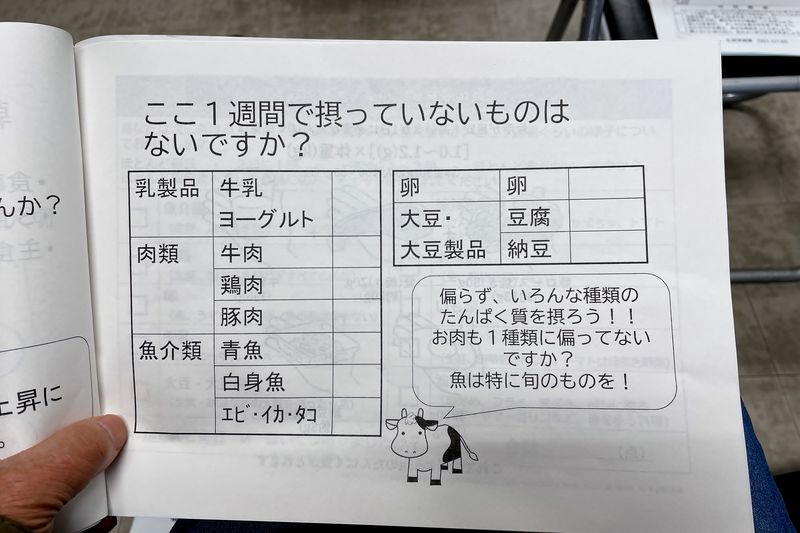 ここ１週間で摂っていないものは
ないですか？
乳製品 牛乳
ヨーグルト
肉類 牛肉
鶏肉
豚肉
魚介類 青魚
白身魚
エビ・イカ・タコ
卵 卵
大豆・ 豆腐
大豆製品 納豆
偏らず、いろんな種類の
たんぱく質を摂ろう！！
お肉も１種類に偏ってない
ですか？
魚は特に旬のものを！
んか？
上昇に
。